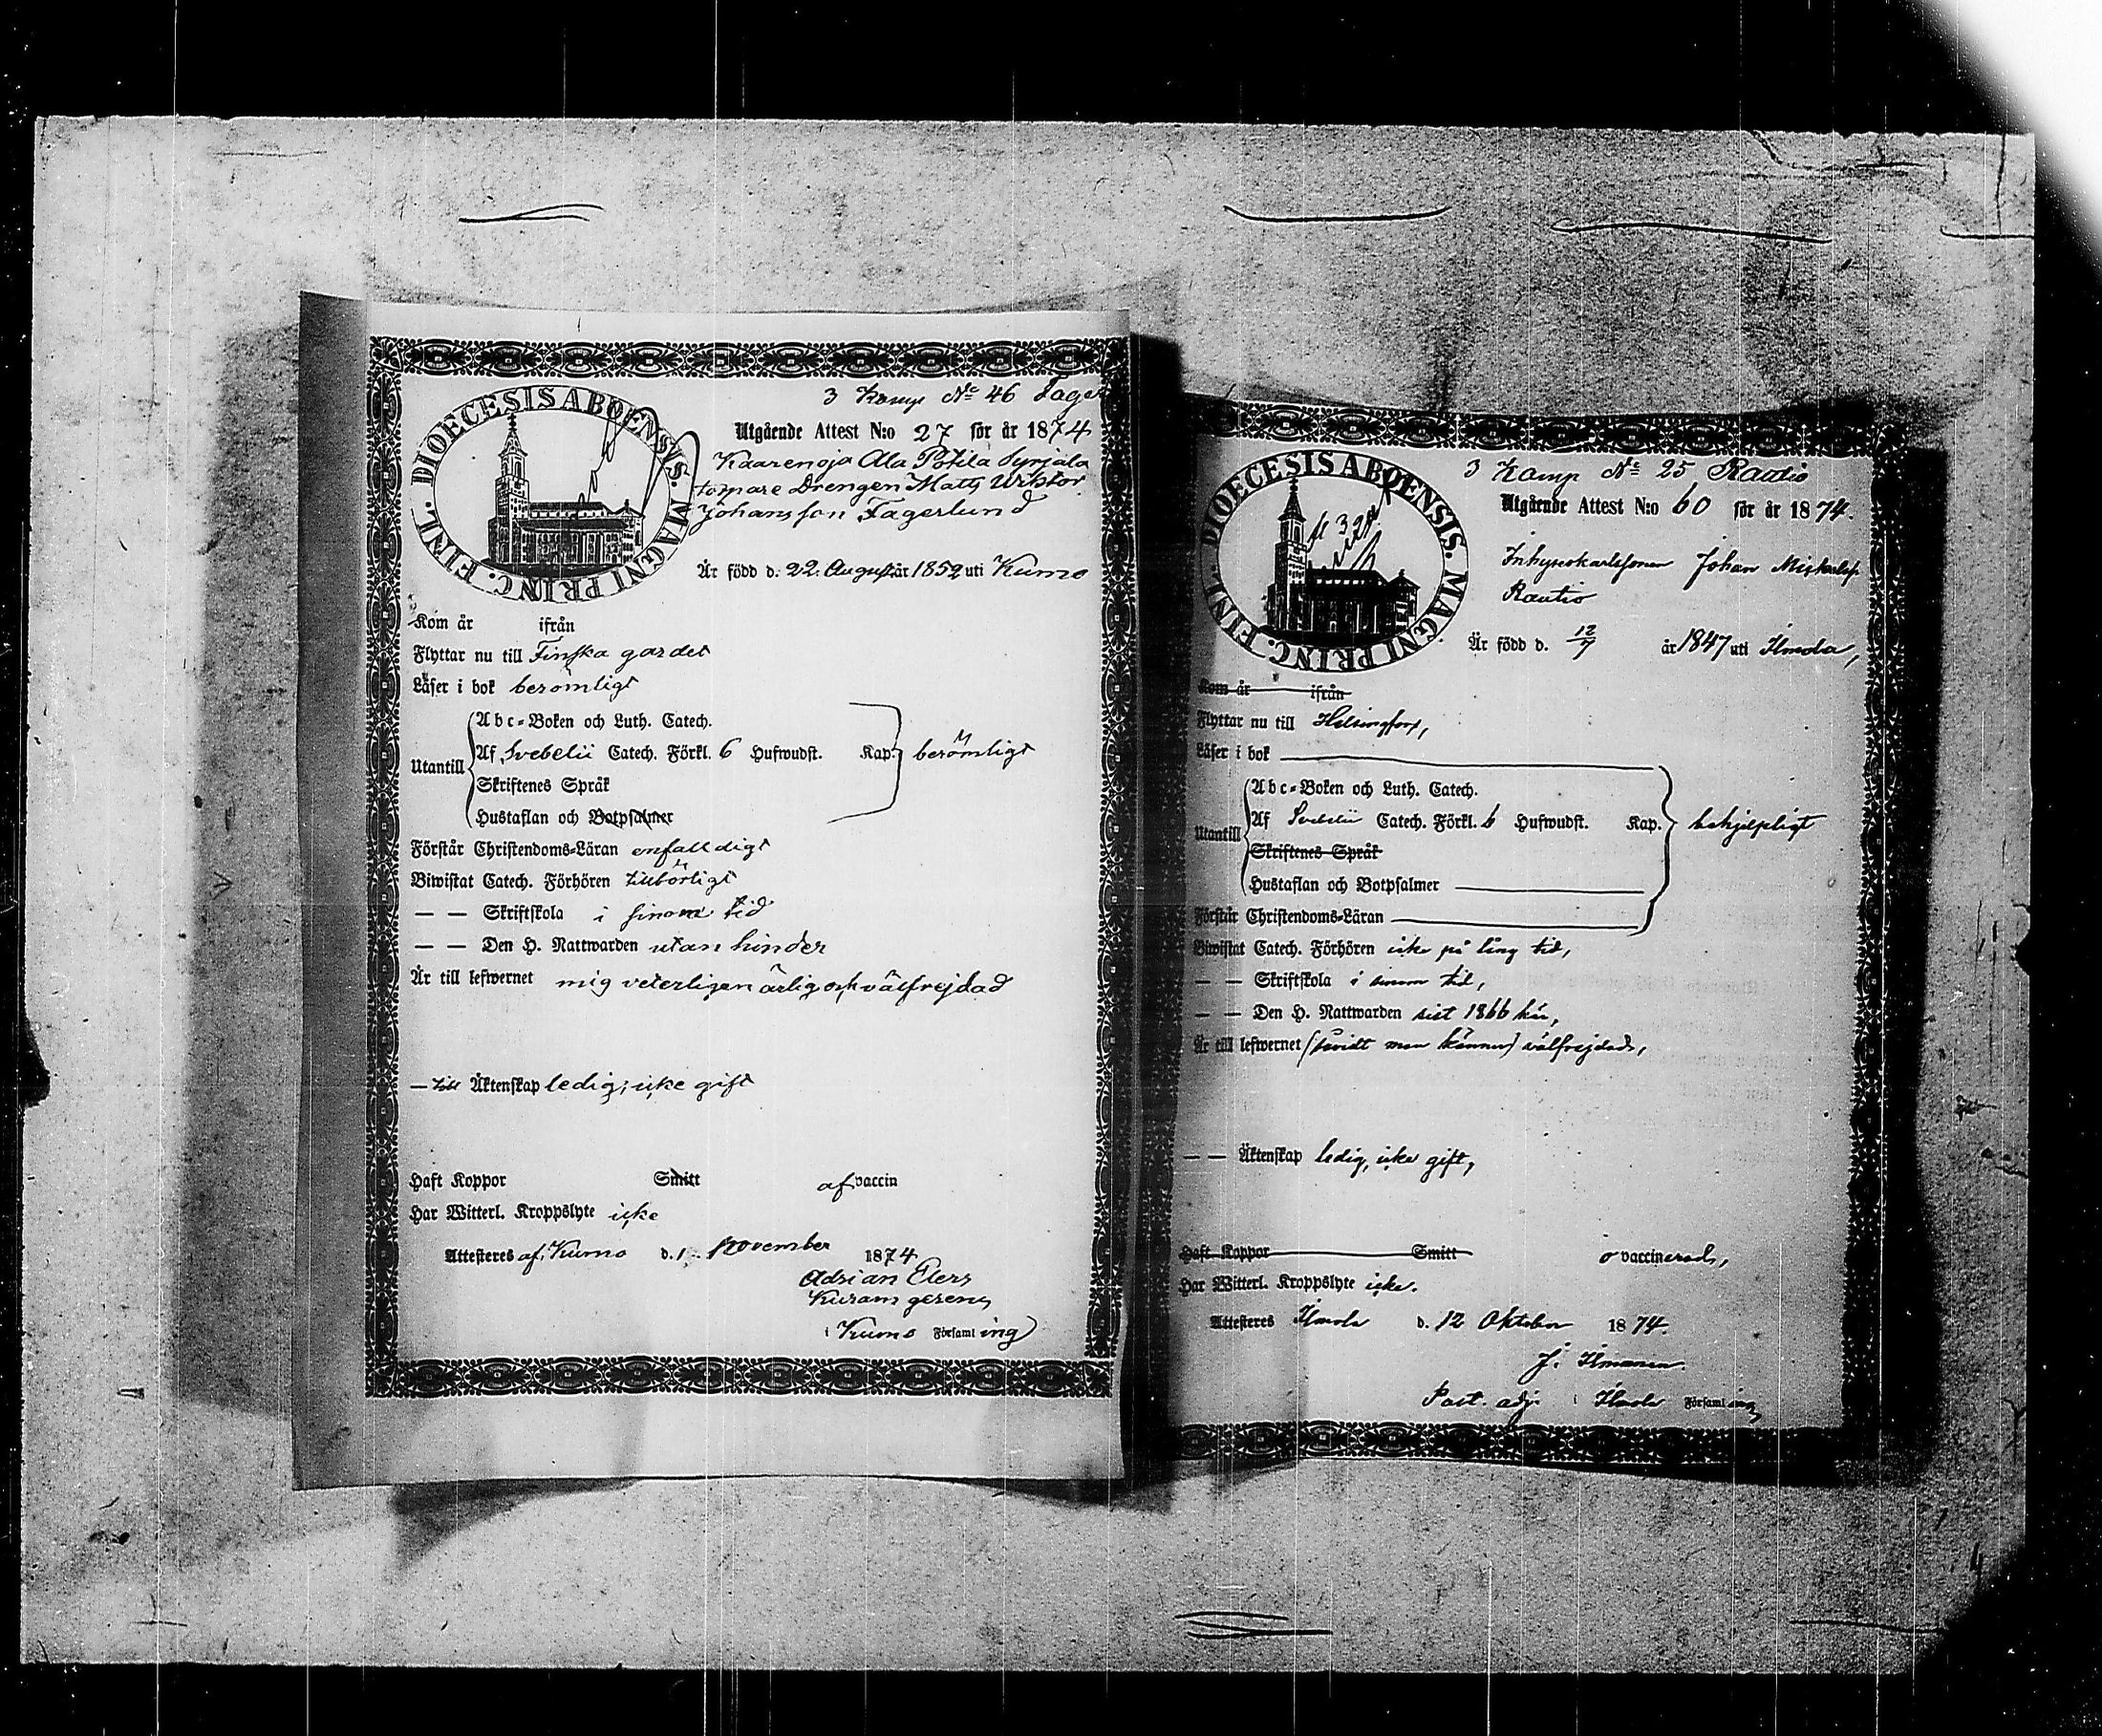 DIOECESIS ABOENSIS. MAGNI PRINC. FINL.
3 Komp No 46 Fager
Utgående Attest N:o 27 för år 1874
Kaarenoja Ala Potila Syrjälä
torpare Drengen Matts Wiktor
Johansson Fagerlund
Är född d. 22. August år 1852 uti Kumo
Kom år ifrån
Flyttar nu till Finska gardet
Läser i bok berömligt
Utantill
Abc-Boken och Luth. Catech.
Af Svebelii Catech. Förkl. 6 Hufwudst. Kap. berömligt
Skriftenes Språk
Hustaflan och Botpsalmer
Förstår Christendoms-Läran enfalldigt
Biwistat Catech. Förhören tillbörligt
— — Skriftskola i sinom tid
— — Den H. Nattwarden utan hinder
Är till lefwernet mig veterligen ärlig och välfrejdad
— till Äktenskap ledig; icke gift
Haft Koppor Smitt af vaccin
Har Witterl. Kroppslyte icke
Attesteres af Kumo d. 1. November 1874
Adrian Elers
i Kumo Församling
DIOECESIS ABOENSIS. MAGNI PRINC. FINL.
3 Komp No 25 Rautio
Utgående Attest N:o 60 för år 1874.
Inhyseskarlssonen Johan Mickelss.
Rautio
Är född d. 12/7 år 1847 uti Ilmola,
Kom år ifrån
Flyttar nu till Helsingfors,
Läser i bok
Utantill
Abc-Boken och Luth. Catech.
Af Svebelii Catech. Förkl. 6 Hufwudst. Kap. behjelpligt
Skriftenes Språk
Hustaflan och Botpsalmer
Förstår Christendoms-Läran
Biwistat Catech. Förhören icke på lång tid,
— — Skriftskola i sinom tid,
— — Den H. Nattwarden sist 1866 här,
Är till lefwernet (såvidt man känner) välfrejdad,
— — Äktenskap ledig, icke gift,
Haft Koppor Smitt o vaccinerad,
Har Witterl. Kroppslyte icke.
Attesteres Ilmola d. 12 Oktober 1874.
J. Ilmanen
Past. adj. i Ilmola Församling